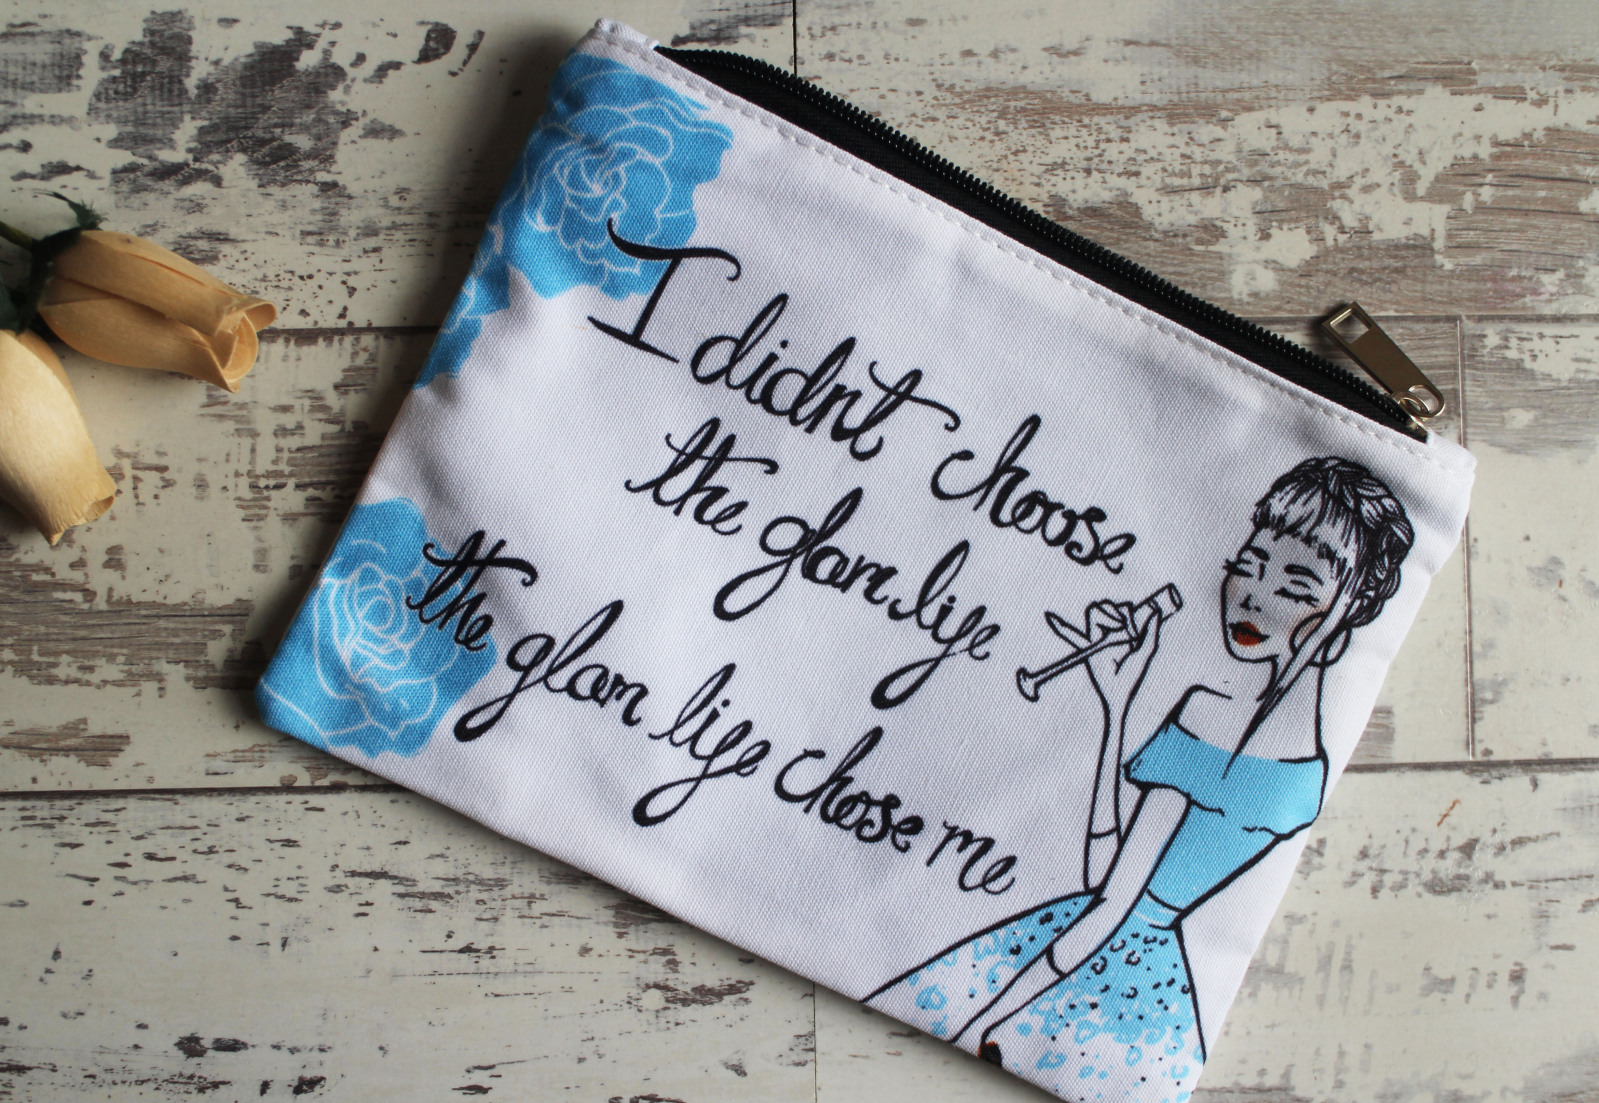 I didn't choose
the glam life
the glam life chose me